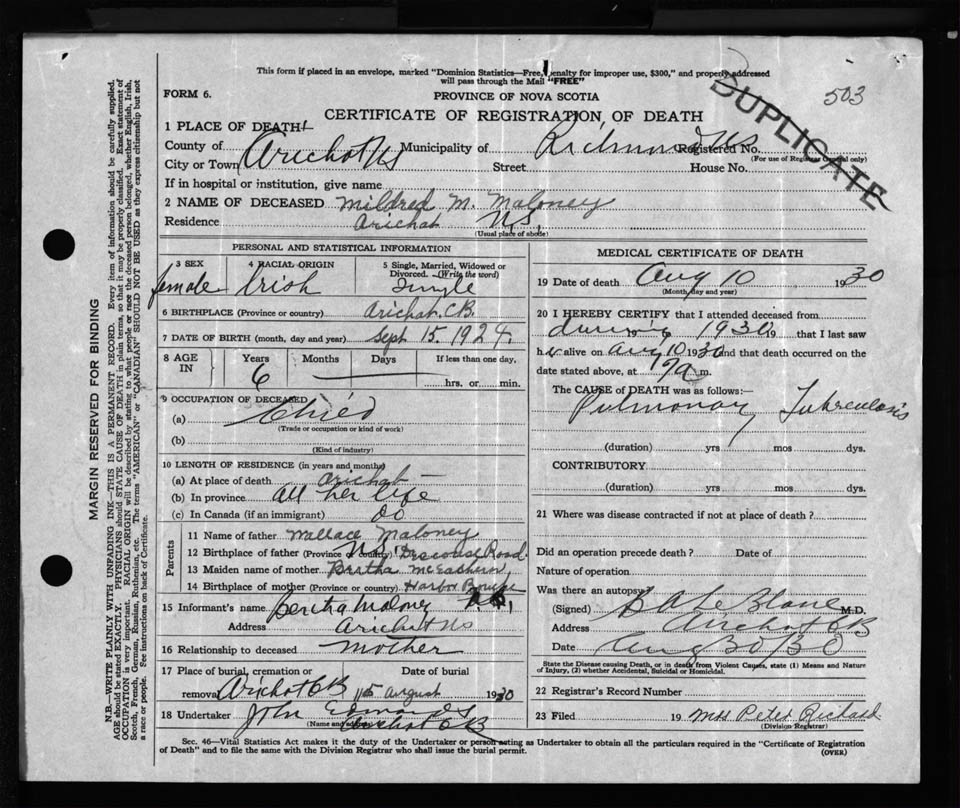 This form if placed in an envelope, marked "Dominion Statistics—Free, penalty for improper use, $300," and properly addressed
will pass through the Mail "FREE"
FORM 6.
PROVINCE OF NOVA SCOTIA
503
DUPLICATE
CERTIFICATE OF REGISTRATION OF DEATH
1 PLACE OF DEATH
County of Arichat NS Municipality of Richmond NS Registered No.
(For use of Registrar General only)
City or Town Street House No.
If in hospital or institution, give name
2 NAME OF DECEASED Mildred M. Maloney
Residence Arichat NS
(Usual place of abode)
PERSONAL AND STATISTICAL INFORMATION
3 SEX 4 RACIAL ORIGIN 5 Single, Married, Widowed or Divorced. (Write the word)
female Irish Single
6 BIRTHPLACE (Province or country) Arichat C.B.
7 DATE OF BIRTH (month, day and year) Sept 15. 1924.
8 AGE IN Years Months Days If less than one day,
6 hrs. or min.
9 OCCUPATION OF DECEASED
(a) Chied
(Trade or occupation or kind of work)
(b)
(Kind of industry)
10 LENGTH OF RESIDENCE (in years and months)
(a) At place of death Arichat
(b) In province all her life
(c) In Canada (if an immigrant) do
Parents
11 Name of father Wallace Maloney
12 Birthplace of father (Province or country) Discouse Road
13 Maiden name of mother Bertha McEachern
14 Birthplace of mother (Province or country) Harbor
15 Informant's name Bertha Maloney
Address Arichat NS
16 Relationship to deceased mother
17 Place of burial, cremation or removal Arichat CB Date of burial 11th August 1930
18 Undertaker John
(Name and address) Arichat CB
MEDICAL CERTIFICATE OF DEATH
19 Date of death Aug 10 1930
(Month, day and year)
20 I HEREBY CERTIFY that I attended deceased from
during 1930 19 that I last saw
her alive on Aug 10 1930 and that death occurred on the
date stated above, at m.
The CAUSE of DEATH was as follows:
Pulmonary Tuberculosis
(duration) yrs mos. dys.
CONTRIBUTORY
(duration) yrs mos. dys.
21 Where was disease contracted if not at place of death?
Did an operation precede death? Date of
Nature of operation
Was there an autopsy
(Signed) LeBlanc M.D.
Address Arichat CB
Date
State the Disease causing Death, or in death from Violent Causes, state (1) Means and Nature
of Injury, (2) whether Accidental, Suicidal or Homicidal.
22 Registrar's Record Number
23 Filed 19 Mrs Peter Richard
(Division Registrar)
Sec. 46—Vital Statistics Act makes it the duty of the Undertaker or person acting as Undertaker to obtain all the particulars required in the "Certificate of Registration
of Death" and to file the same with the Division Registrar who shall issue the burial permit.
(OVER)
MARGIN RESERVED FOR BINDING
N.B.—WRITE PLAINLY WITH UNFADING INK—THIS IS A PERMANENT RECORD. Every item of information should be carefully supplied.
AGE should be stated EXACTLY. PHYSICIANS should STATE CAUSE OF DEATH in plain terms, so that it may be properly classified. Exact statement of
OCCUPATION is very important. RACIAL ORIGIN will be described by stating to what people or race the deceased person belonged, whether English, Irish,
Scotch, French, German, Russian, Ruthenian, etc. The terms "AMERICAN" or "CANADIAN" SHOULD NOT BE USED as they express citizenship but not
a race or people. See instructions on back of Certificate.